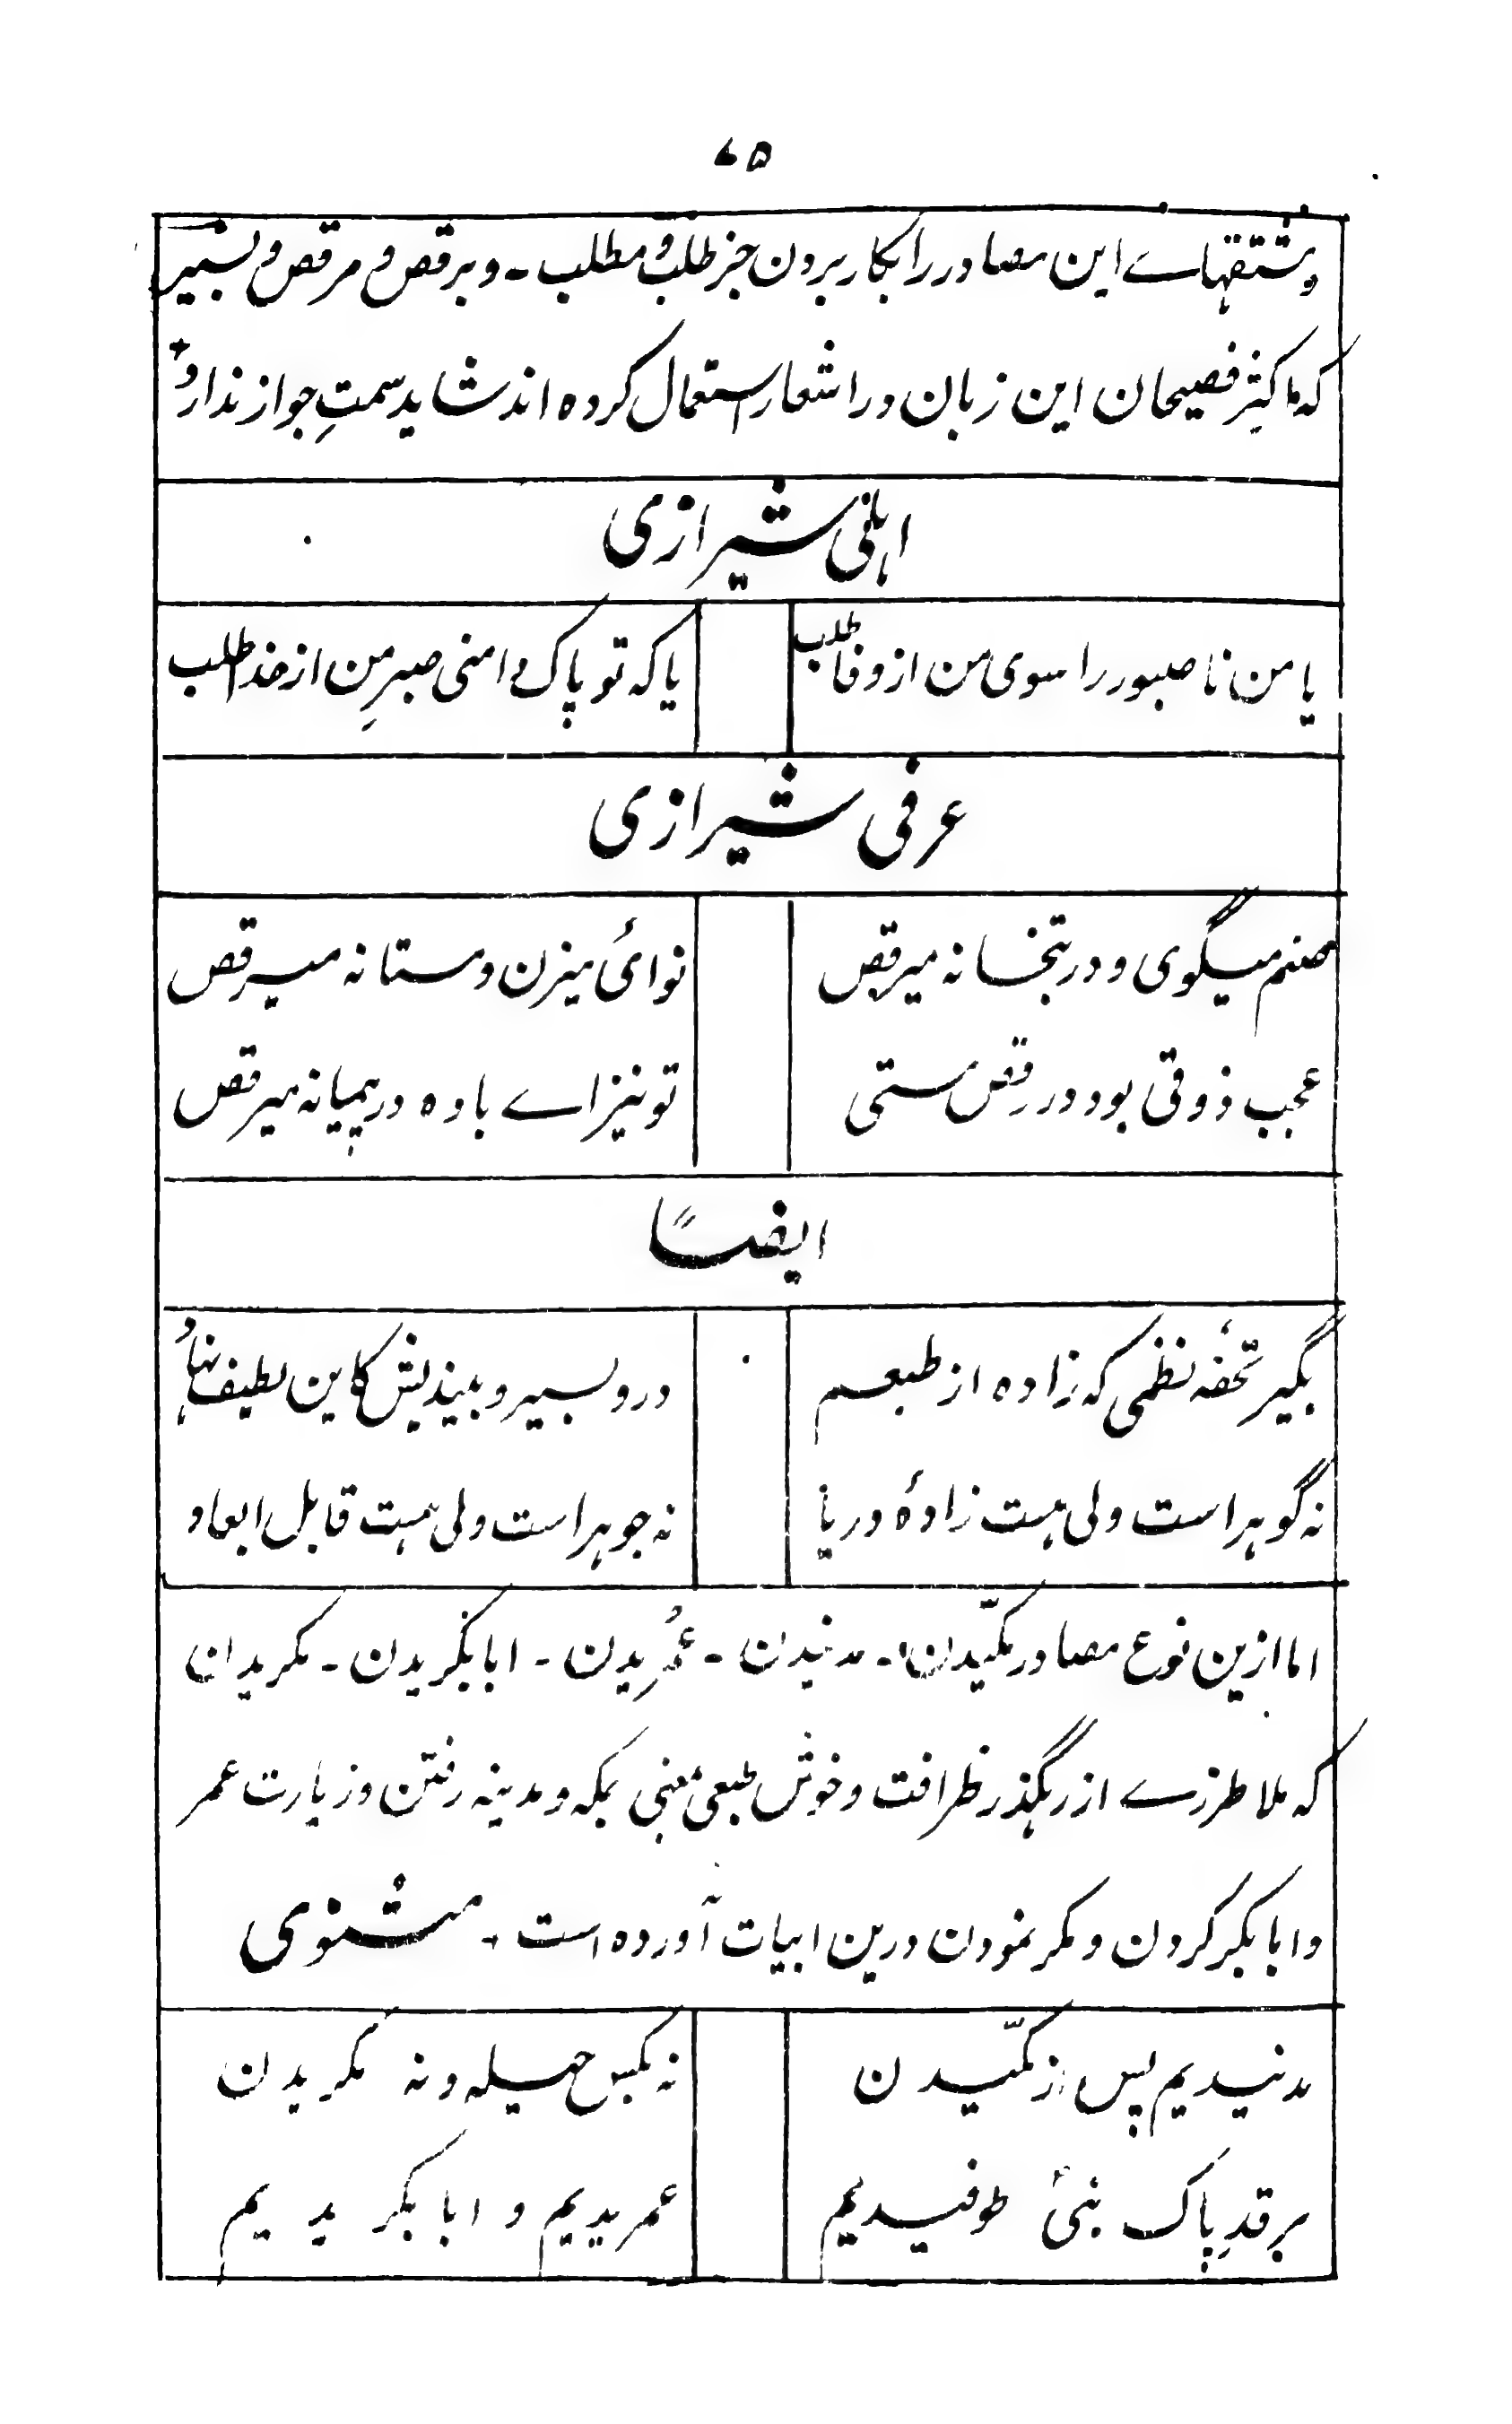 ۷۵
ومشتقهاے این مصادر را بکار بردن جز طلب و مطلب - و برقص و مرقص و بسیر
که اکثر فصیحان این زبان در اشعار استعمال کرده اند شاید سمتِ جواز ندارد
اہلی شیرازی
یا من ناصبور را سوی من از وفا طلب
یا که تو پاک دامنی صبرِ من از خدا طلب
عرفی شیرازی
صنم میگوی و در بتخانه میرقص
نوائی میزن و مستانه میرقص
عجب ذوقی بود در رقص مستی
تو نیز اے باده در پیمانه میرقص
ایضاً
بگیر تحفهٔ نظمی که زاده از طبعم
درو بسیر و بیندیش کاین لطیف نهاد
نه گوہر است ولی ہست زادهٔ دریا
نه جوہر است ولی ہست قابل ابعاد
اما ازین نوع مصادر مکّیدن - مدنیدن - عُمَریدن - ابابکریدن - مکریدن
که ملا طرزے از رہگذر ظرافت و خوش طبعی بمعنی بمکه و مدینه رفتن و زیارت عمر
و ابابکر کردن و مکر نمودن درین ابیات آورده است - مثنوی
مدنیدیم پس از مکّیدن
نه بکس حیله و نه مکریدن
مرقدِ پاک نبیٔ طوفیدیم
عمریدیم و ابابکریدیم